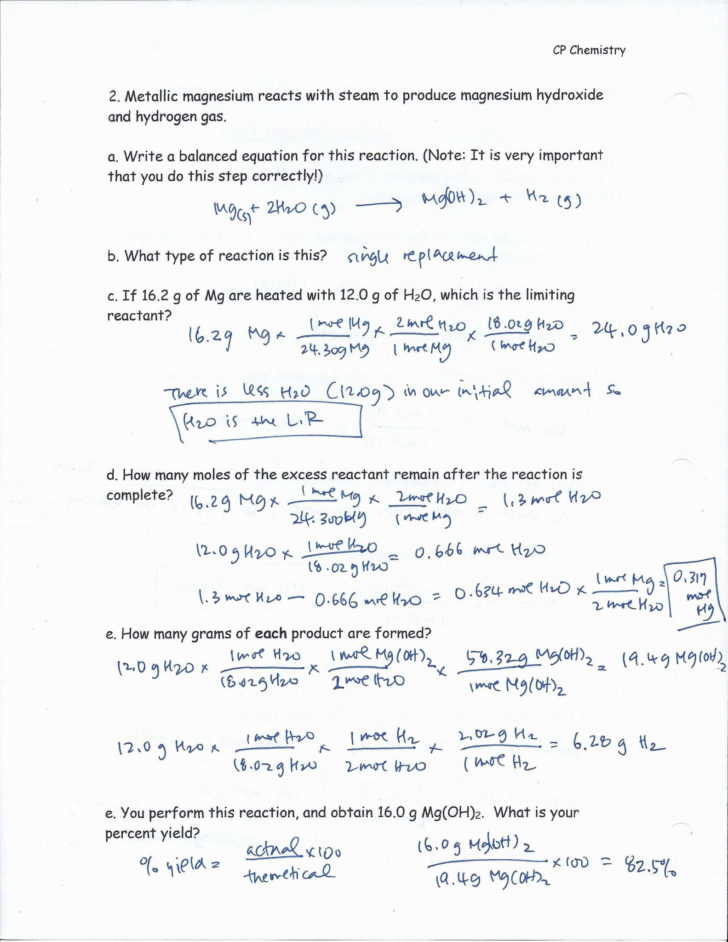 CP Chemistry
2. Metallic magnesium reacts with steam to produce magnesium hydroxide
and hydrogen gas.
a. Write a balanced equation for this reaction. (Note: It is very important
that you do this step correctly!)
Mg(s) + 2H2O (g) ⟶ Mg(OH)2 + H2 (g)
b. What type of reaction is this? single replacement
c. If 16.2 g of Mg are heated with 12.0 g of H2O, which is the limiting
reactant?
16.2g Mg × 1 mol Mg / 24.30g Mg × 2 mol H2O / 1 mol Mg × 18.02g H2O / 1 mol H2O = 24.0g H2O
There is less H2O (12.0g) in our initial amount so
H2O is the L.R
d. How many moles of the excess reactant remain after the reaction is
complete? 16.2g Mg × 1 mol Mg / 24.30g Mg × 2 mol H2O / 1 mol Mg = 1.3 mol H2O
12.0g H2O × 1 mol H2O / 18.02g H2O = 0.666 mol H2O
1.3 mol H2O − 0.666 mol H2O = 0.634 mol H2O × 1 mol Mg / 2 mol H2O = 0.317 mol Mg
e. How many grams of each product are formed?
12.0g H2O × 1 mol H2O / 18.02g H2O × 1 mol Mg(OH)2 / 2 mol H2O × 58.32g Mg(OH)2 / 1 mol Mg(OH)2 = 19.4g Mg(OH)2
12.0g H2O × 1 mol H2O / 18.02g H2O × 1 mol H2 / 2 mol H2O × 2.02g H2 / 1 mol H2 = 6.28 g H2
e. You perform this reaction, and obtain 16.0 g Mg(OH)2. What is your
percent yield?
% yield = actual / theoretical ×100 16.0g Mg(OH)2 / 19.4g Mg(OH)2 ×100 = 82.5%